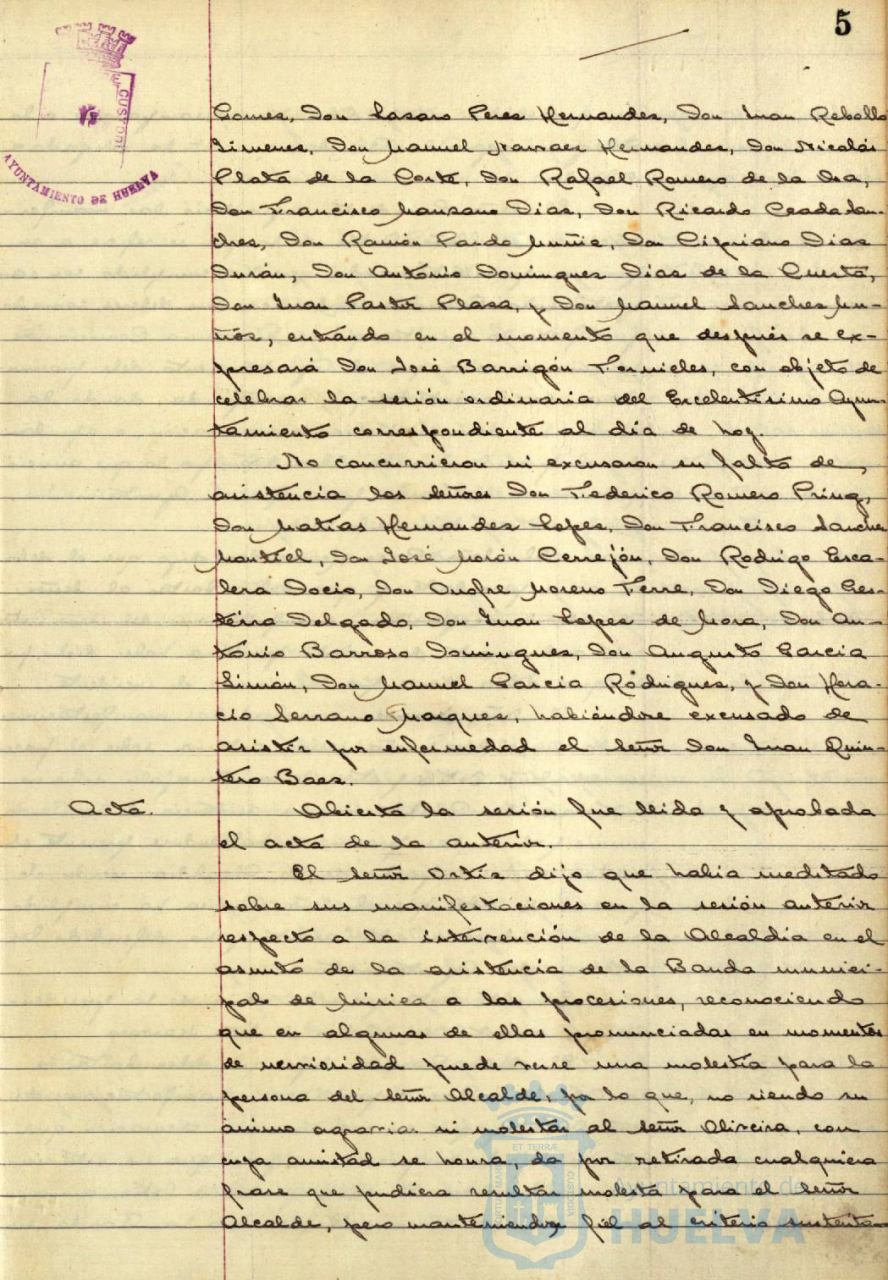 5
CUSTODI
AYUNTAMIENTO DE HUELVA
Gomes, Don Lasaro Peres Hernandes, Don Juan Rebollo
Jimenes, Don Manuel Narvaes Hernandes, Don Nicolás
Plata de la Corte, Don Rafael Romero de la Osa,
Don Francisco Mansano Dias, Don Ricardo Ceada San-
ches, Don Ramón Pardo Muñis, Don Cipriano Dias
Durán, Don Antonio Domingues Dias de la Cuesta,
Don Juan Pastor Plasa, y Don Manuel Sanches Mu-
ños, entrando en el momento que después se ex-
presará Don José Barrigón Fornieles, con objeto de
celebrar la sesión ordinaria del Excelentísimo Ayun-
tamiento correspondiente al día de hoy.
No concurrieron ni excusaron su falta de
asistencia los señores Don Federico Romero Pring,
Don Matías Hernandes Lopes, Don Francisco Sanches
Montiel, Don José Morón Cerrejón, Don Rodrigo Esca-
lera Docio, Don Onofre Moreno Ferre, Don Diego Ges-
tera Delgado, Don Juan Lopes de Mora, Don An-
tonio Barroso Domingues, Don Augusto Garcia
Simón, Don Manuel Garcia Rodrigues, y Don Hora-
cio Serrano Marques, habiéndose excusado de
asistir por enfermedad el señor Don Juan Quin-
tero Baes.
Acta. Abierta la sesión fue leida y aprobada
el acta de la anterior.
El señor Ortis dijo que habia meditado
sobre sus manifestaciones en la sesión anterior
respecto a la intervención de la Alcaldia en el
asunto de la asistencia de la Banda munici-
pal de Música a las procesiones, reconociendo
que en algunas de ellas pronunciadas en momentos
de nerviosidad puede verse una molestia para la
persona del señor Alcalde, por lo que, no siendo su
ánimo agraviar ni molestar al señor Oliveira, con
cuya amistad se honra, da por retirada cualquiera
frase que pudiera resultar molesta para el señor
Alcalde, pero manteniendose fiel al criterio sustenta-
ET TERRÆ
Ayuntamiento de
HUELVA